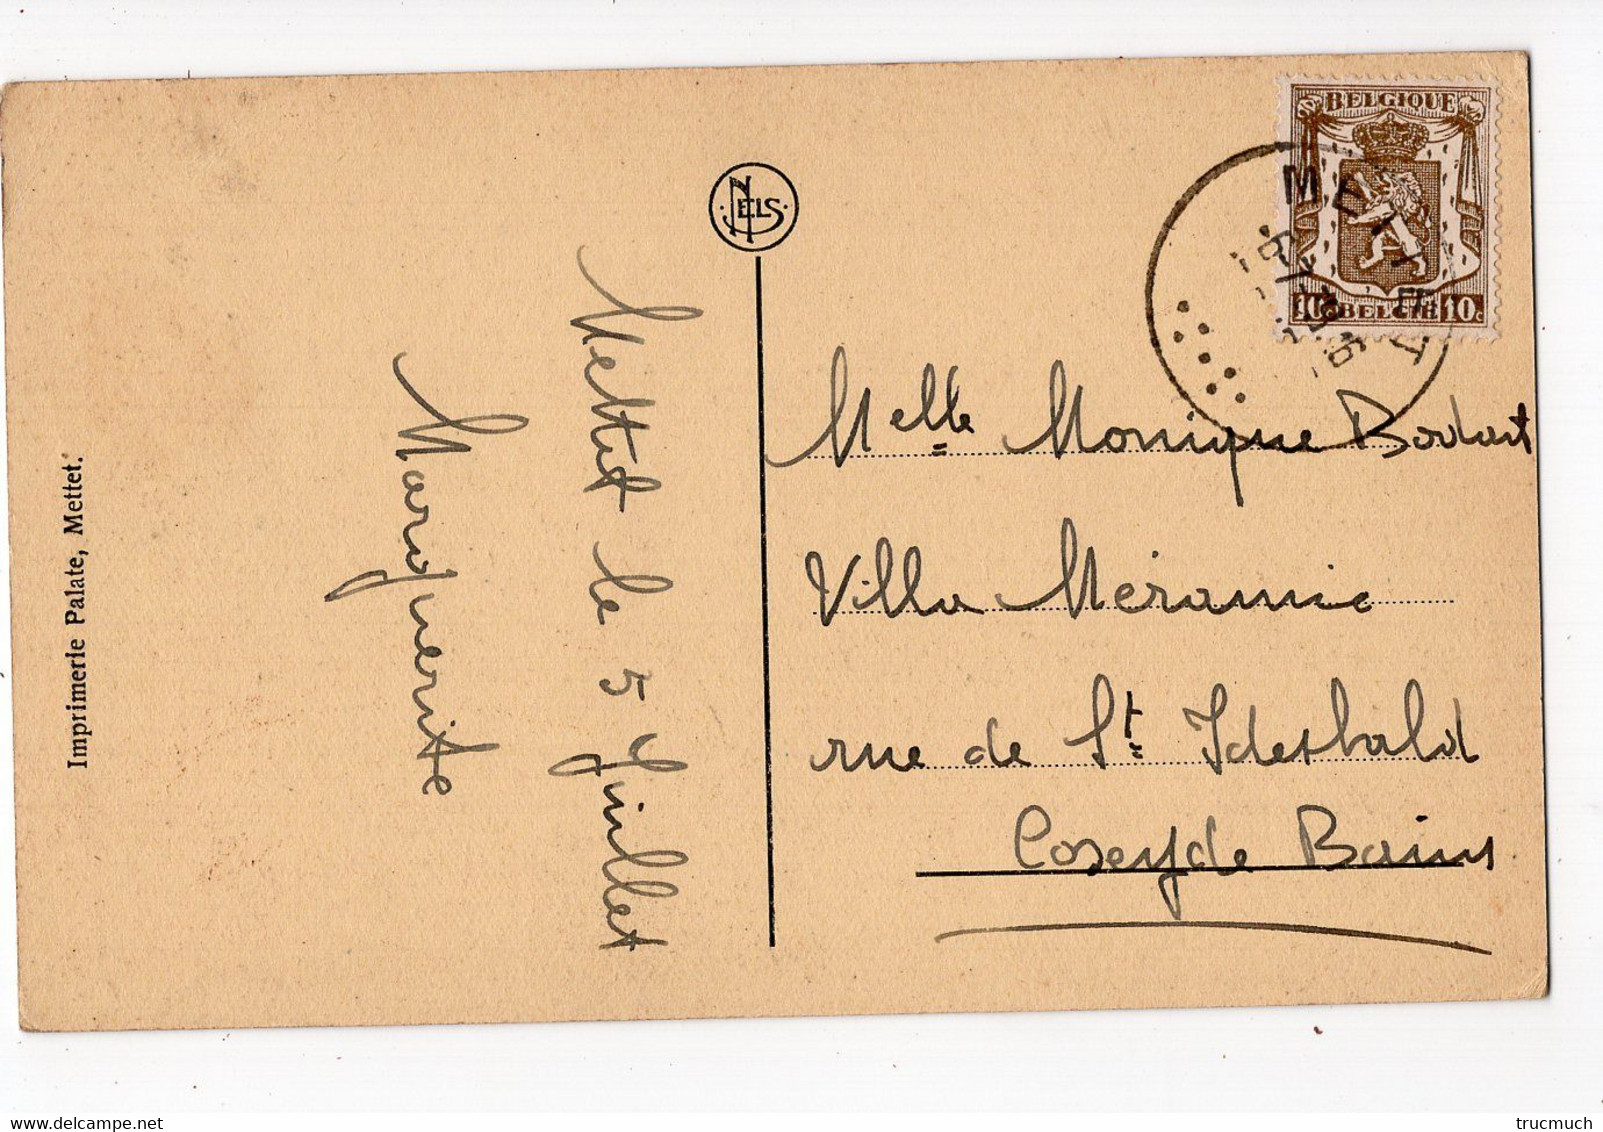 Imprimerie Palate, Mettet.
Mettet le 5 Juillet
Marguerite
NELS
BELGIQUE
10c BELGIË 10c
METTET
Melle Monique Bodart
Villa Meramie
rue de St Idesbald
Coxeyde Bains
trucmuch